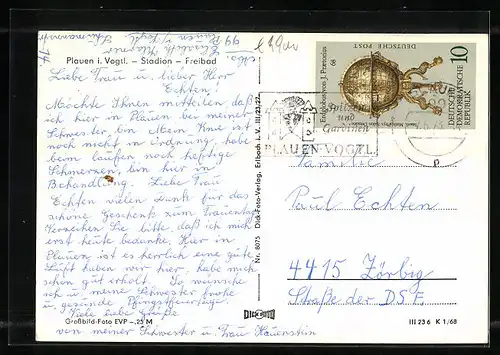 Plauen i. Vogtl. – Stadion – Freibad
Liebe Frau u. lieber Herr
Echten!
Möchte Ihnen mitteilen, daß
ich hier in Plauen bei meiner
Schwester, bin. Mein Knie ist
noch nicht in Ordnung, habe
beim laufen noch heftige
Schmerzen, bin hier in
Behandlung. Liebe Frau
Echten vielen Dank für das
schöne Geschenk zum
Verzeihen Sie bitte, daß ich mich
erst heute bedanke. Hier in
Plauen ist es herrlich eine gute
Luft haben wir hier, habe mich
schon gut erholt. So wünsche
ich u. meine Schwester frohe
u. gesunde Pfingstfeiertage.
Viele liebe Grüße
von meiner Schwester u. Frau Hauenstein
Großbild-Foto EVP –,25 M
Elisabeth
99 Plauen i. Vogtl.
Nr. 8075 Dick-Foto-Verlag, Erlbach i. V. III/23/22
DICK FOTO
68
DEUTSCHE POST
10
DEUTSCHE
DEMOKRATISCHE
REPUBLIK
Spitzen
und
Gardinen
PLAUEN-VOGTL.
p
Familie
Paul Echten
4415 Zörbig
Straße der DSF.
III 23 6 K 1/68